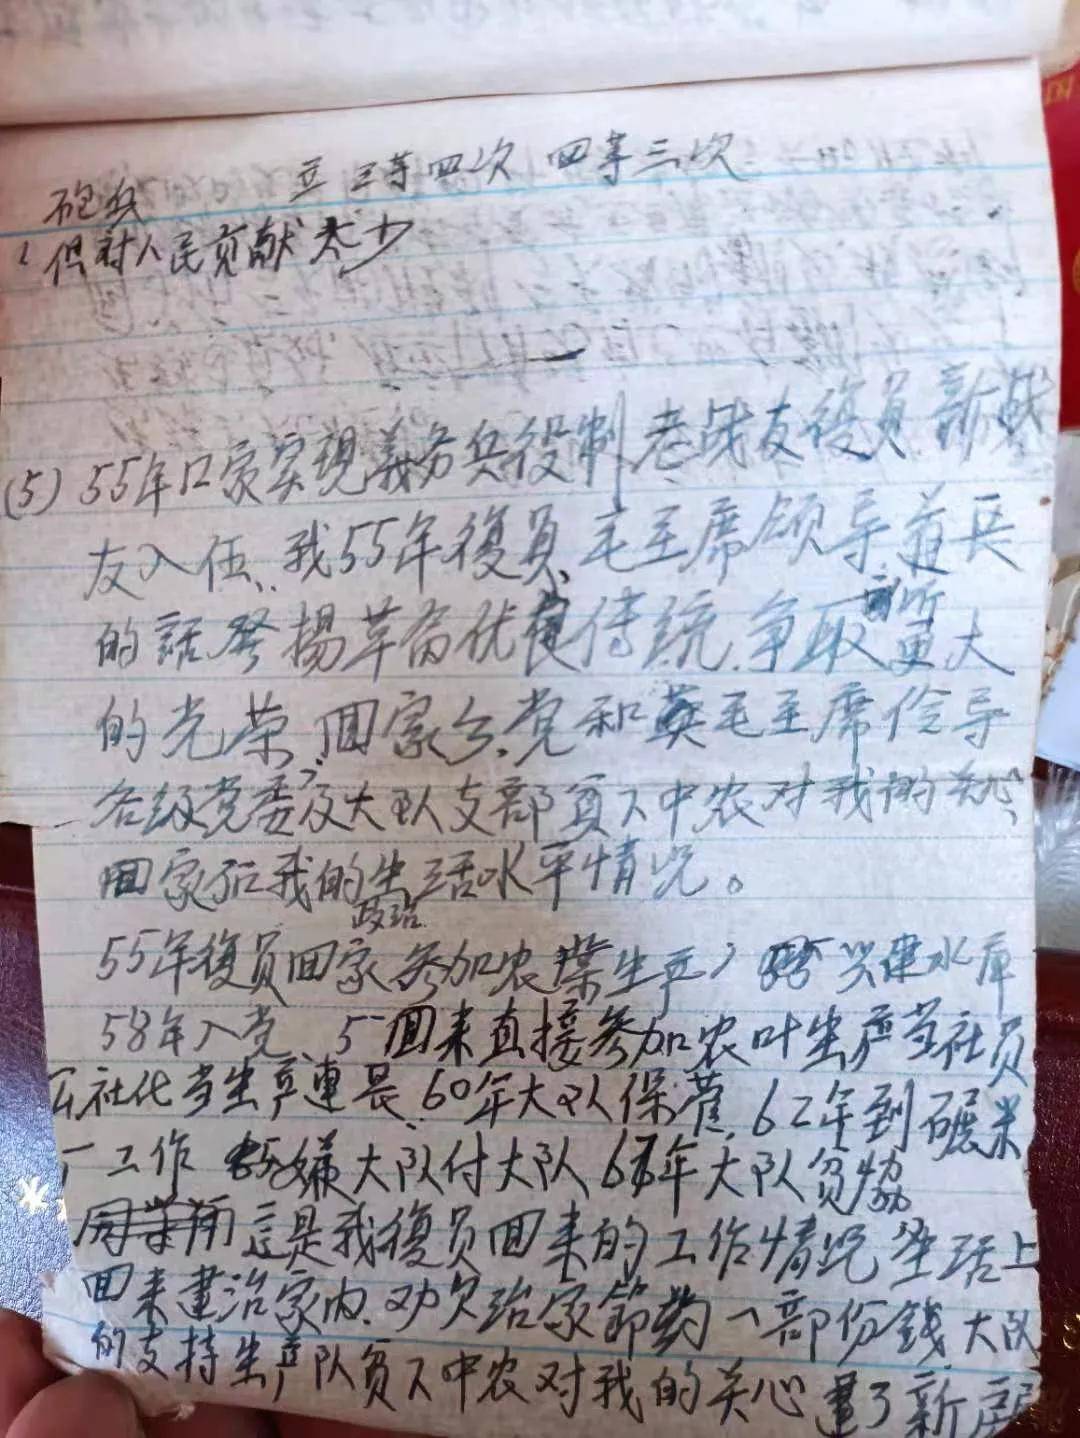 立 三等四次 四等三次
砲兵
但对人民贡献太少
(5) 55年口家实现義务兵役制 老战友復員 新战
友入伍、我55年復員、毛主席领导首長
的話 發揚革命优良传統、争取更大
的光荣、回家公、党和毛主席伶导
各级党委及大队支部貧下中农对我的关心、
回家后我的生活水平情况。
政治
55年復員回家参加农業生产 兴建水库
58年入党、5 回来直接参加农叶生产当社員
公社化当生产連長、60年大队保管、62年到碾米
厂工作 嫌大队付大队 67年大队貧协
這是我復員回来的工作情况 生活上
回来建治家内、劝欠治家節药一部份錢 大队
的支持生产队貧下中农对我的关心 建了新房